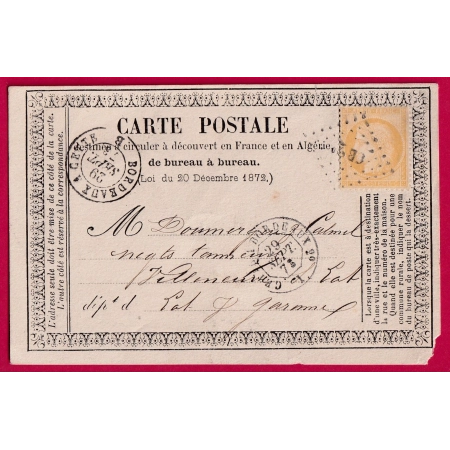 CARTE POSTALE
destinée à circuler à découvert en France et en Algérie,
de bureau à bureau.
(Loi du 20 Décembre 1872.)
BORDEAUX A CETTE
29
SEPT.
BORDEAUX
29
SEPT.
M Doumerc Calmel
negts tanneurs
Villeneuve s/ Lot
dépt d Lot & Garonne
L'adresse seule doit être mise de ce côté de la carte.
L'autre côté est réservé à la correspondance.
Lorsque la carte est à destination
d'une ville, indiquer très-exactement
la rue et le numéro de la maison.
Quand elle est destinée pour une
commune rurale, indiquer le nom
du bureau de poste qui la dessert.